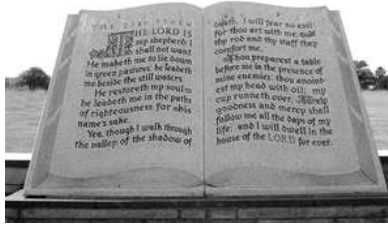 THE 23RD PSALM
THE LORD IS
my shepherd: I
shall not want
He maketh me to lie down
in green pastures: he leadeth
me beside the still waters.
He restoreth my soul:
he leadeth me in the paths
of righteousness for his
name's sake.
Yea, though I walk through
the valley of the shadow of
death, I will fear no evil:
for thou art with me;
thy rod and thy staff they
comfort me.
Thou preparest a table
before me in the presence of
mine enemies: thou anoint-
est my head with oil; my
cup runneth over.
goodness and mercy shall
follow me all the days of my
life: and I will dwell in the
house of the LORD for ever.